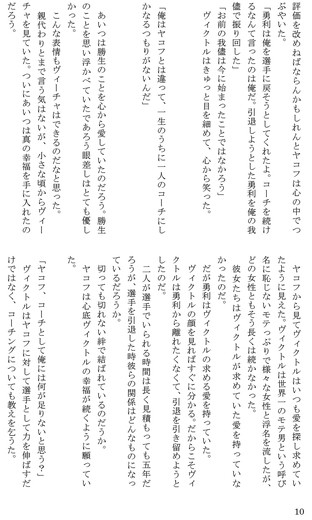 評価を改めねばならんかもしれんとヤコフは心の中でつ
ぶやいた。
「勇利は俺を選手に戻そうとしてくれたよ。コーチを続け
るなんて言ったのは俺だ。引退しようとした勇利を俺の我
儘で振り回した」
「お前の我儘は今に始まったことではなかろう」
ヴィクトルはきゅっと目を細めて、心から笑った。
「俺はヤコフとは違って、一生のうちに一人のコーチにし
かなるつもりがないんだ」
あいつは勝生のことを心から愛していたのだろう。勝生
のことを思い浮かべていたであろう眼差しはとても優し
かった。
こんな表情もヴィーチャはできるのだなと思った。
親代わりとまで言う気はないが、小さな頃からヴィー
チャを見ていた。ついにあいつは真の幸福を手に入れたの
だろう。
ヤコフから見てヴィクトルはいつも愛を探し求めてい
たように見えた。ヴィクトルは世界一のモテ男という呼び
名に恥じないモテっぷりで様々な女性と浮名を流したが、
どの女性ともそう長くは続かなかった。
彼女たちはヴィクトルが求めていた愛を持っていな
かったのだ。
だが勇利はヴィクトルの求める愛を持っていた。
ヴィクトルの顔を見ればすぐに分かる。だからこそヴィ
クトルは勇利から離れたくなくて、引退を引き留めようと
したのだ。
二人が選手でいられる時間は長く見積もっても五年だ
ろうが、選手を引退した時彼らの関係はどんなものになっ
ているだろうか。
切っても切れない絆で結ばれているのだろうか。
ヤコフは心底ヴィクトルの幸福が続くように願ってい
た。
「ヤコフ、コーチとして俺には何が足りないと思う?」
ヴィクトルはヤコフに対して選手として力を伸ばすだ
けではなく、コーチングについても教えを乞うた。
10